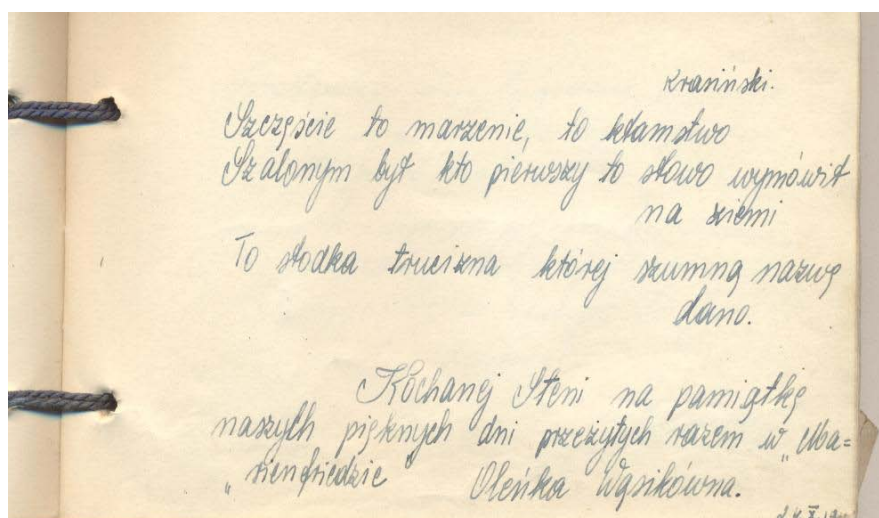 Krasiński.
Szczęście to marzenie, to kłamstwo
Szalonym był kto pierwszy to słowo wymówił
na ziemi
To słodka trucizna której szumną nazwę
dano.
Kochanej Steni na pamiątkę
naszych pięknych dni przeżytych razem w „Ma=
„rienfriedzie
Oleńka Wąsikówna.